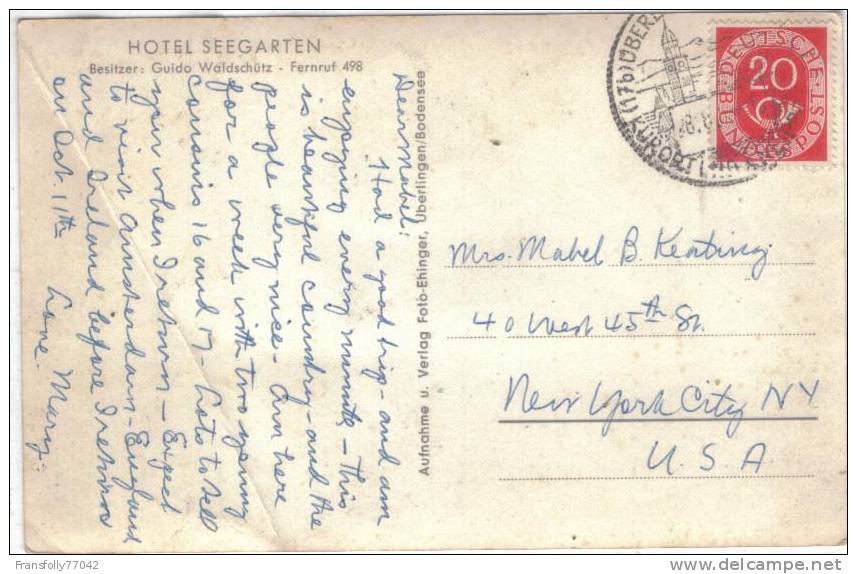 HOTEL SEEGARTEN
Besitzer: Guido Waldschütz - Fernruf 498
Dear Mabel:
Had a good trip - and am
enjoying every minute - This
is beautiful country - and the
people very nice - Am here
for a week with two young
cousins 16 and 17 - Lots to tell
you when I return - Expect
to visit Amsterdam - England
and Ireland before I return
on Oct. 11th
Love - Mary -
Aufnahme u. Verlag Foto-Ehinger, Überlingen/Bodensee
(17b) ÜBERL
KURORT
DEUTSCHE
BUNDESPOST
20
Mrs. Mabel B. Keating
40 West 45th St.
New York City NY
U.S.A
Fransfolly77042
delcampe.net